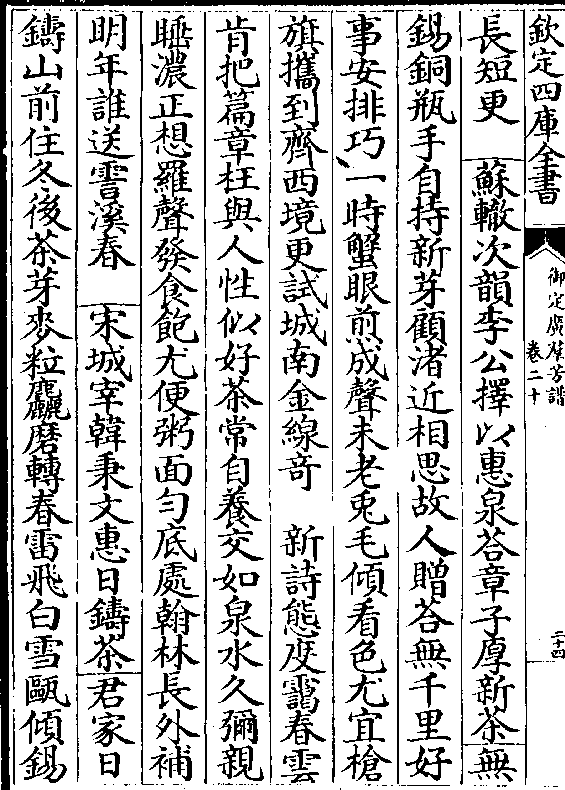 欽定四庫全書
御定廣羣芳譜
卷二十
二十四
長短更　蘇轍次韻李公擇以惠泉荅章子厚新茶無
錫銅瓶手自持新芽顧渚近相思故人贈荅無千里好
事安排巧一時蟹眼煎成聲未老兎毛傾看色尤宜槍
旗攜到齊西境更試城南金線竒　新詩態度靄春雲
肯把篇章枉與人性似好茶常自養交如泉水久彌親
睡濃正想羅聲發食飽尤便粥面勻底處翰林長外補
明年誰送霅溪春　宋城宰韓秉文惠日鑄茶君家日
鑄山前住冬後茶芽麥粒麤磨轉春雷飛白雪甌傾錫